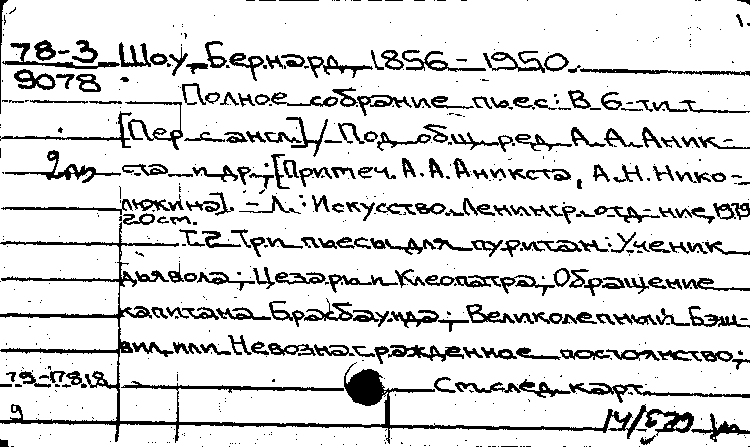 1.
78-3 Шоу, Бернард, 1856-1950.
9078
Полное собрание пьес: В 6-ти т.
[Пер. с англ.] / Под общ. ред. А. А. Аник-
ста и др.; [Примеч. А. А. Аникста, А. Н. Нико-
люкина]. - Л.: Искусство. Ленингр. отд-ние, 1979
20 см.
Т. 2 Три пьесы для пуритан: Ученик
дьявола; Цезарь и Клеопатра; Обращение
капитана Брасбаунда; Великолепный Бэш-
вил, или Невознагражденное постоянство;
79-17818 См. след. карт.
9